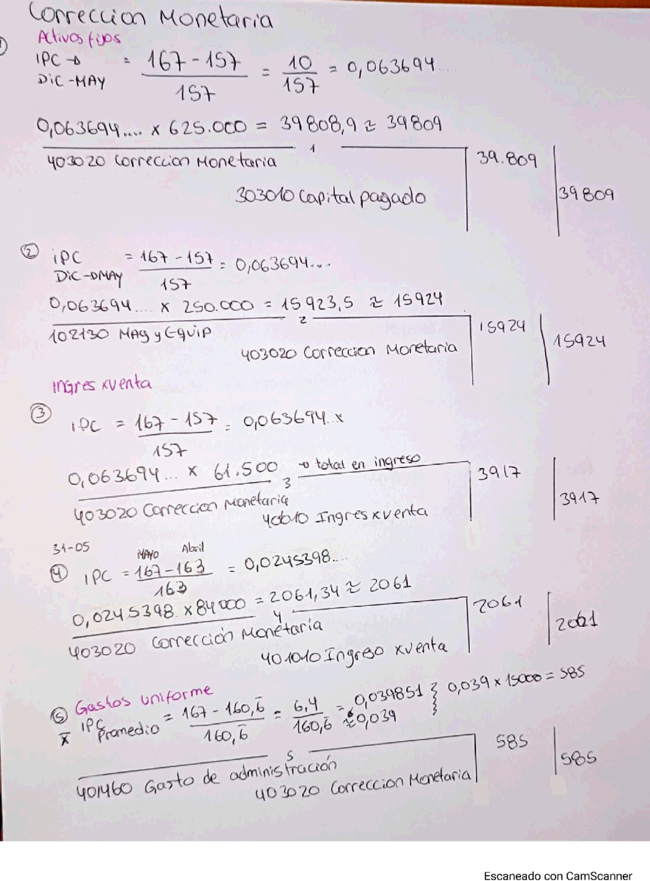 Correccion Monetaria
Activos fijos
IPC → DIC-MAY = 167 - 157 / 157 = 10 / 157 = 0,063694...
0,063694.... x 625.000 = 39808,9 ≈ 39809
1
403020 Correccion Monetaria 39.809
303010 Capital pagado 39809
② IPC DIC-DMAY = 167 - 157 / 157 = 0,063694...
0,063694.... x 250.000 = 15923,5 ≈ 15924
2
102130 MAq y Equip 15924
403020 Correccion Monetaria 15924
Ingres xventa
③ IPC = 167 - 157 / 157 = 0,063694. x
0,063694... x 61.500 → total en ingreso
3
403020 Correccion Monetaria 3917
40010 Ingres xventa 3917
31-05
④ IPC = MAYO 167 - Abril 163 / 163 = 0,0245398...
0,0245398. x 84000 = 2061,34 ≈ 2061
4
403020 Corrección Monetaria 2061
401010 Ingreso xventa 2061
⑤ Gastos uniforme
x̄ IPC Promedio = 167 - 160,6̄ / 160,6̄ = 6,4 / 160,6̄ = 0,039851 ≈ 0,039 } 0,039 x 15000 = 585
5
401460 Gasto de administración 585
403020 Correccion Monetaria 585
Escaneado con CamScanner